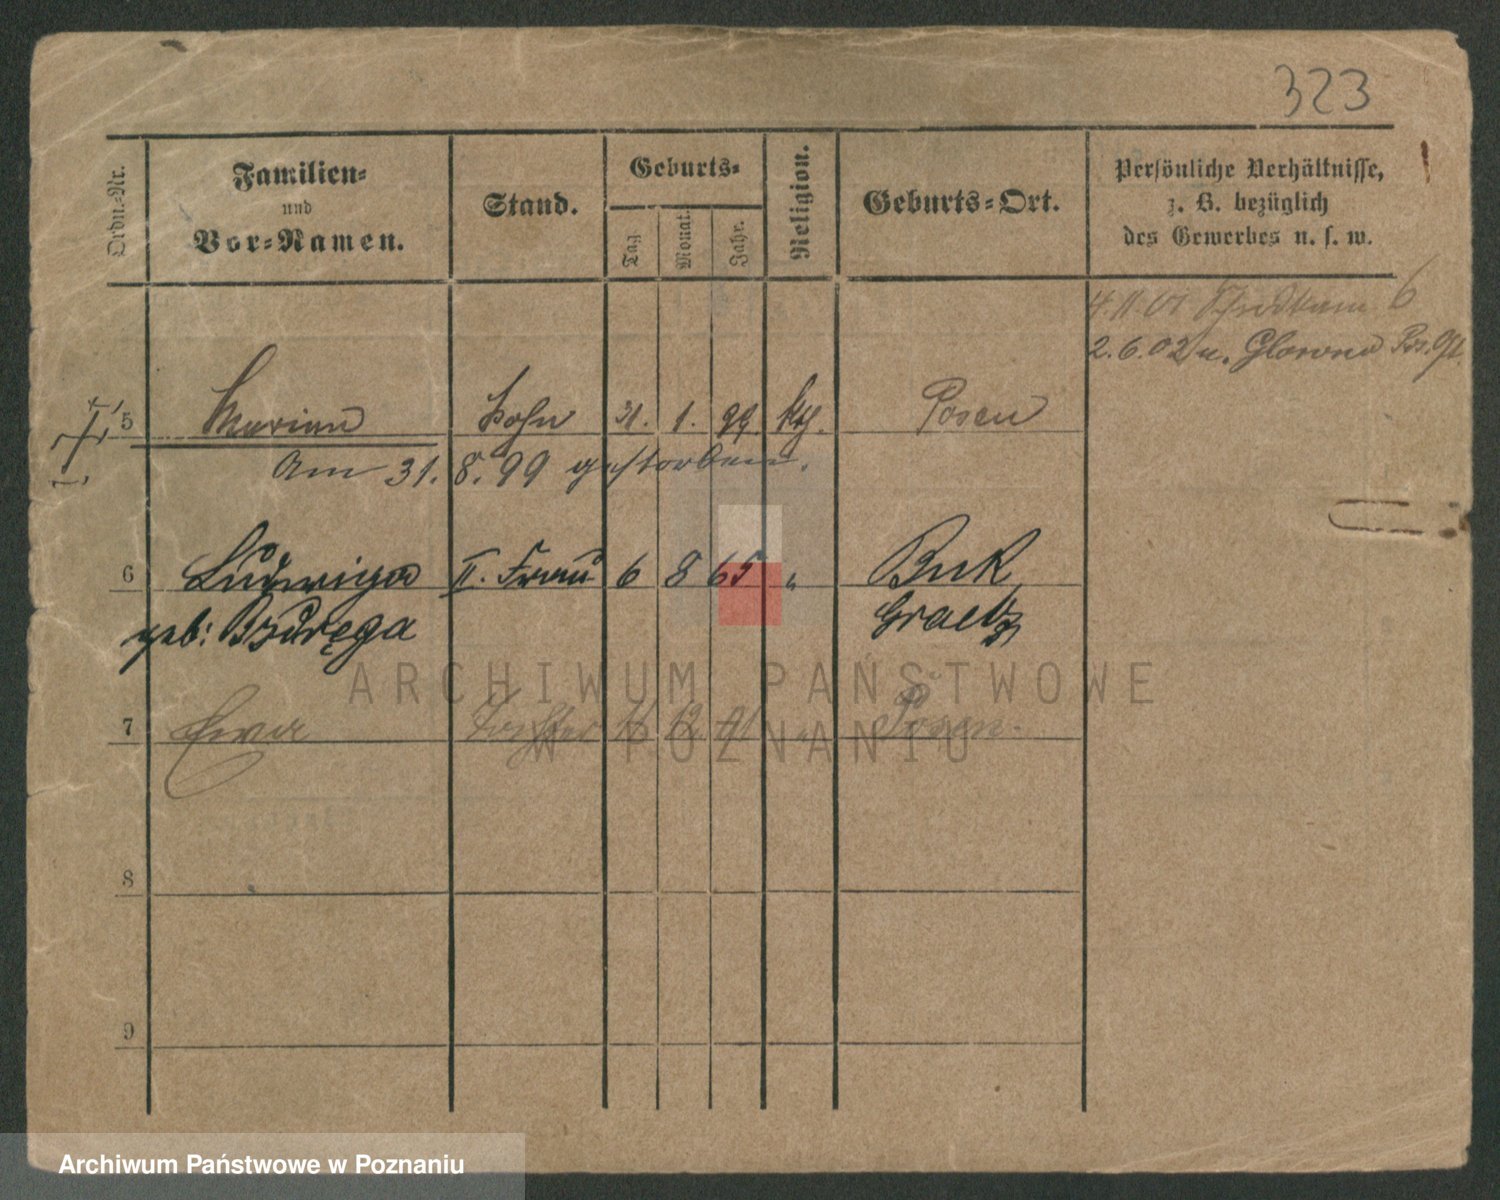 323
Ordn.-Nr.
Familien-
und
Vor-Namen.
Stand.
Geburts-
Tag
Monat.
Jahr.
Religion.
Geburts-Ort.
Persönliche Verhältnisse,
z. B. bezüglich
des Gewerbes u. s. w.
4.11.01
2.6.02 n. Glowno Pos. Ost
5 Marian Sohn 21. 1. 99 kth. Posen
Am 31. 8. 99 gestorben.
6 Ludwiga II. Frau 6 8 65 " Buk
geb: Bzdręga Graetz
7 Ewa Tochter 12 01 " Posen.
8
9
ARCHIWUM PAŃSTWOWE
W POZNANIU
Archiwum Państwowe w Poznaniu